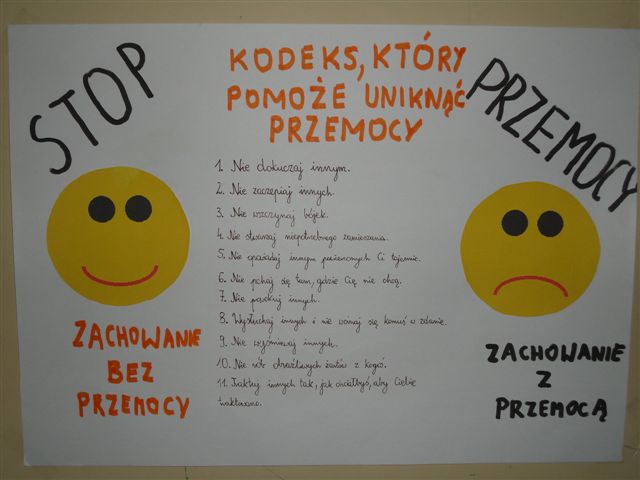 STOP
KODEKS, KTÓRY
POMOŻE UNIKNĄĆ
PRZEMOCY
PRZEMOCY
1. Nie dokuczaj innym.
2. Nie zaczepiaj innych.
3. Nie wszczynaj bójek.
4. Nie stwarzaj niepotrzebnego zamieszania.
5. Nie opowiadaj innym powierzonych Ci tajemnic.
6. Nie pchaj się tam, gdzie Cię nie chcą.
7. Nie prowokuj innych.
8. Wysłuchaj innych i nie wcinaj się komuś w zdanie.
9. Nie wyśmiewaj innych.
10. Nie rób obraźliwych żartów z kogoś.
11. Traktuj innych tak, jak chciałbyś, aby Ciebie
traktowano.
ZACHOWANIE
BEZ
PRZEMOCY
ZACHOWANIE
Z
PRZEMOCĄ